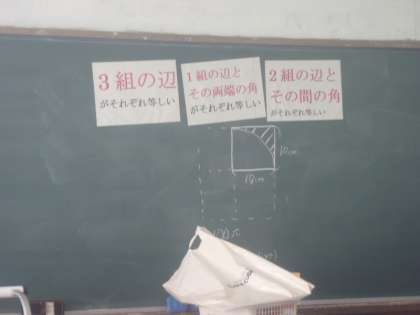 3組の辺
がそれぞれ等しい
1組の辺と
その両端の角
がそれぞれ等しい
2組の辺と
その間の角
がそれぞれ等しい
10cm
10cm